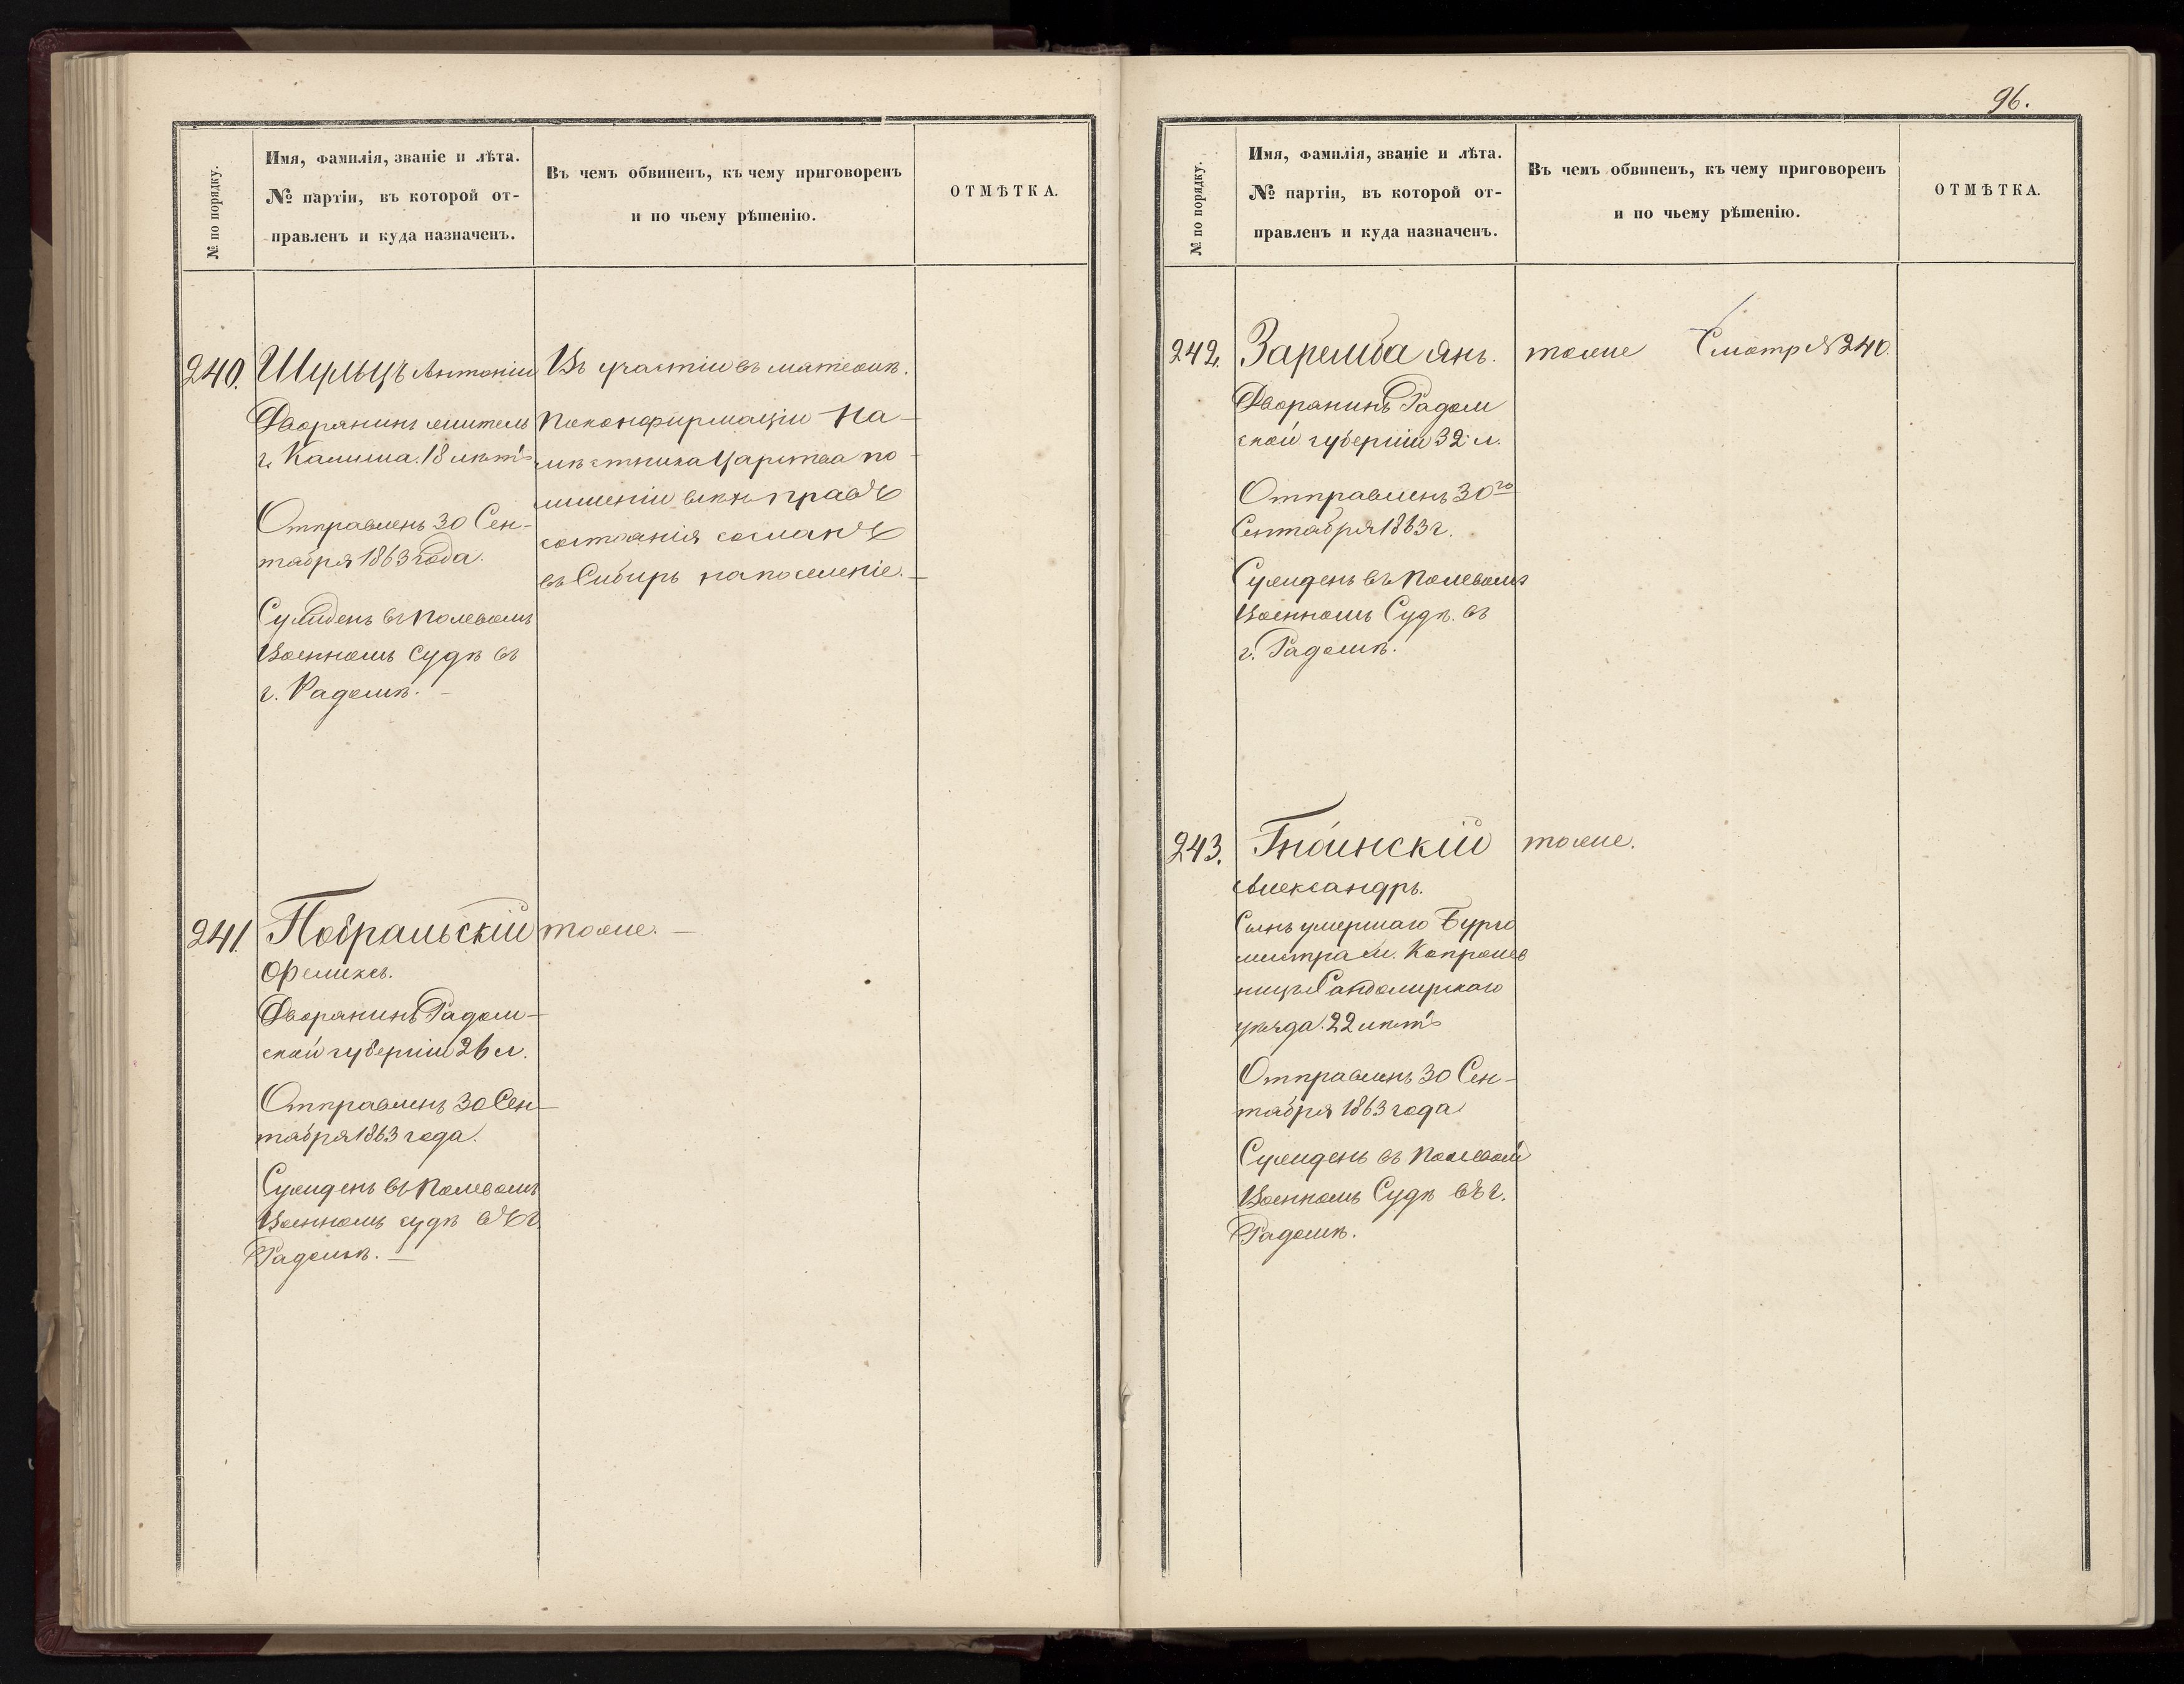 № по порядку.
Имя, фамилія, званіе и лѣта.
№ партіи, въ которой от-
правленъ и куда назначенъ.
Въ чемъ обвиненъ, къ чему приговоренъ
и по чьему рѣшенію.
ОТМѢТКА.
240. Шульцъ Антоній
Дворянинъ житель
г. Калиша. 18 лѣтъ
Отправленъ 30 Сен-
тября 1863 года.
Сужденъ въ Полевомъ
Военномъ Судѣ въ
г. Радомѣ. -
Въ участіи въ мятежѣ.
По конфирмаціи На-
мѣстника Царства по
лишеніи всѣхъ правъ
состоянія сосланъ
въ Сибирь на поселеніе. -
241. Побральскій
Феликсъ.
Дворянинъ Радом-
ской губерніи 26 л.
Отправленъ 30 Сен-
тября 1863 года.
Сужденъ въ Полевомъ
Военномъ судѣ въ г.
Радомѣ. -
тоже. -
96.
№ по порядку.
Имя, фамилія, званіе и лѣта.
№ партіи, въ которой от-
правленъ и куда назначенъ.
Въ чемъ обвиненъ, къ чему приговоренъ
и по чьему рѣшенію.
ОТМѢТКА.
242. Заремба Янъ.
Дворянинъ Радом
ской губерніи 32 л.
Отправленъ 30го
Сентября 1863 г.
Сужденъ въ Полевомъ
Военномъ Судѣ въ
г. Радомѣ.
тоже Смотр № 240.
243. Гноинскій
Александръ.
Сынъ умершаго Бурго
мистра м. Копрыв
ницы Сандомирскаго
уѣзда. 22 лѣтъ
Отправленъ 30 Сен-
тября 1863 года
Сужденъ въ Полевом
Военномъ Судѣ въ г.
Радомѣ.
тоже.